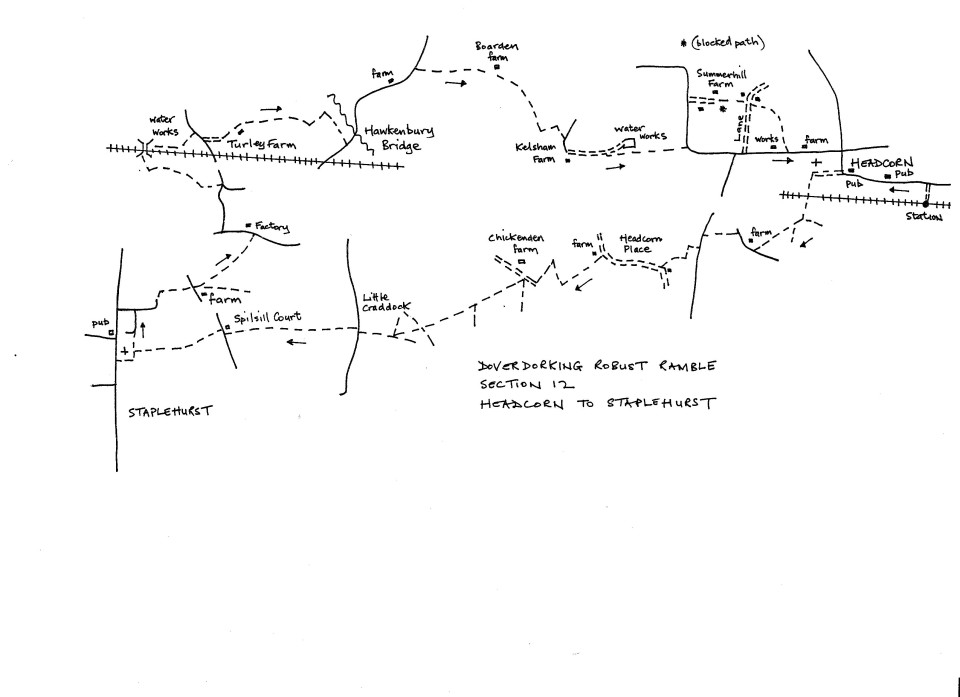 * (blocked path)
Boarden
farm
farm
Summerhill
Farm
water
works
Turley Farm
Hawkenbury
Bridge
Kelsham
Farm
water
works
Lane
works
farm
HEADCORN
pub
pub
Station
Factory
Chickenden
farm
farm
Headcorn
Place
farm
farm
Little
Craddock
Spilsill Court
pub
DOVERDORKING ROBUST RAMBLE
SECTION 12
HEADCORN TO STAPLEHURST
STAPLEHURST